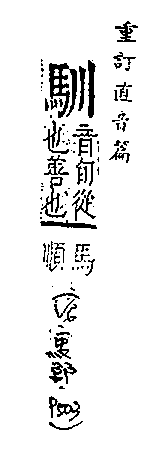 重訂直音篇
馴
音旬從
也善也
馬
順
P503)